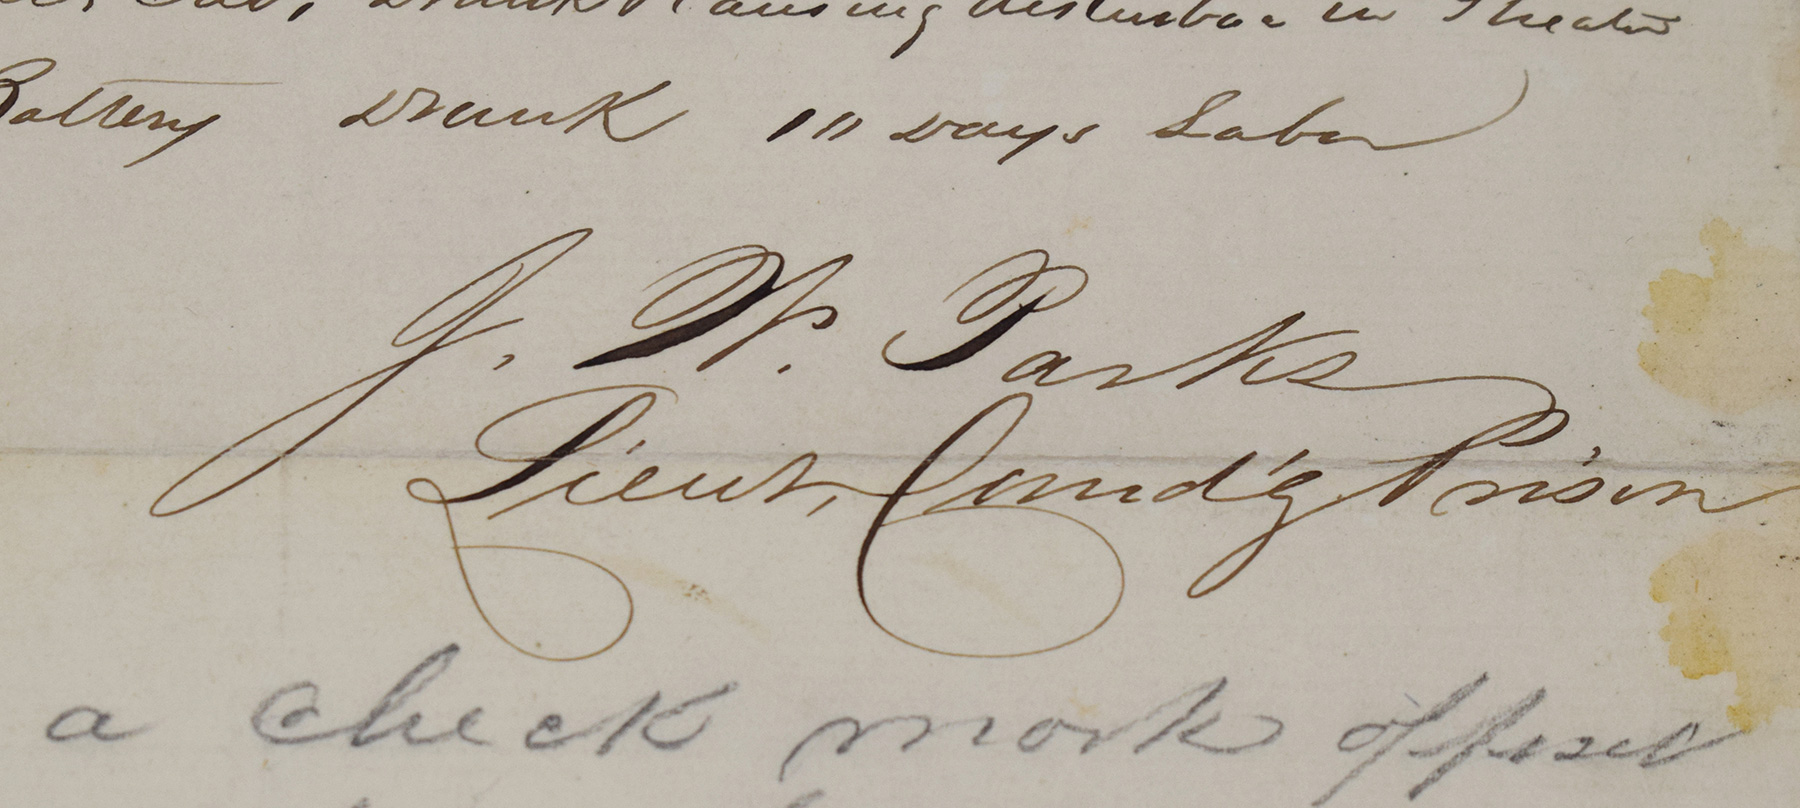 Cav, Drunk & causing disturban in Theatre
Battery Drunk 10 Days Labor
J. W. Parks
Lieut, Comd'g Prison
a check mark opposit